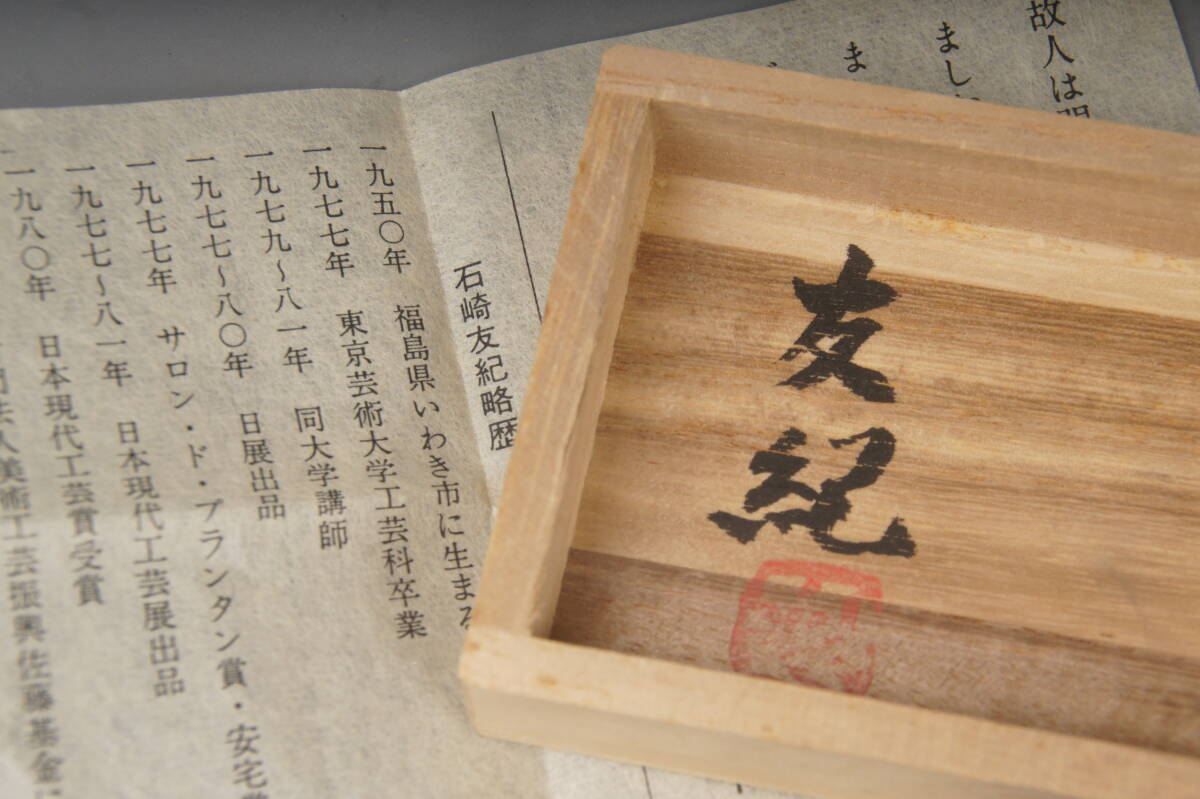 故人は
まし
ま
石崎友紀略歴
一九五〇年 福島県いわき市に生まる
一九七七年 東京芸術大学工芸科卒業
一九七九〜八一年 同大学講師
一九七七〜八〇年 日展出品
一九七七年 サロン・ド・プランタン賞・安宅
一九七七〜八一年 日本現代工芸展出品
一九八〇年 日本現代工芸賞受賞
法人美術工芸振興佐藤基金
友紀